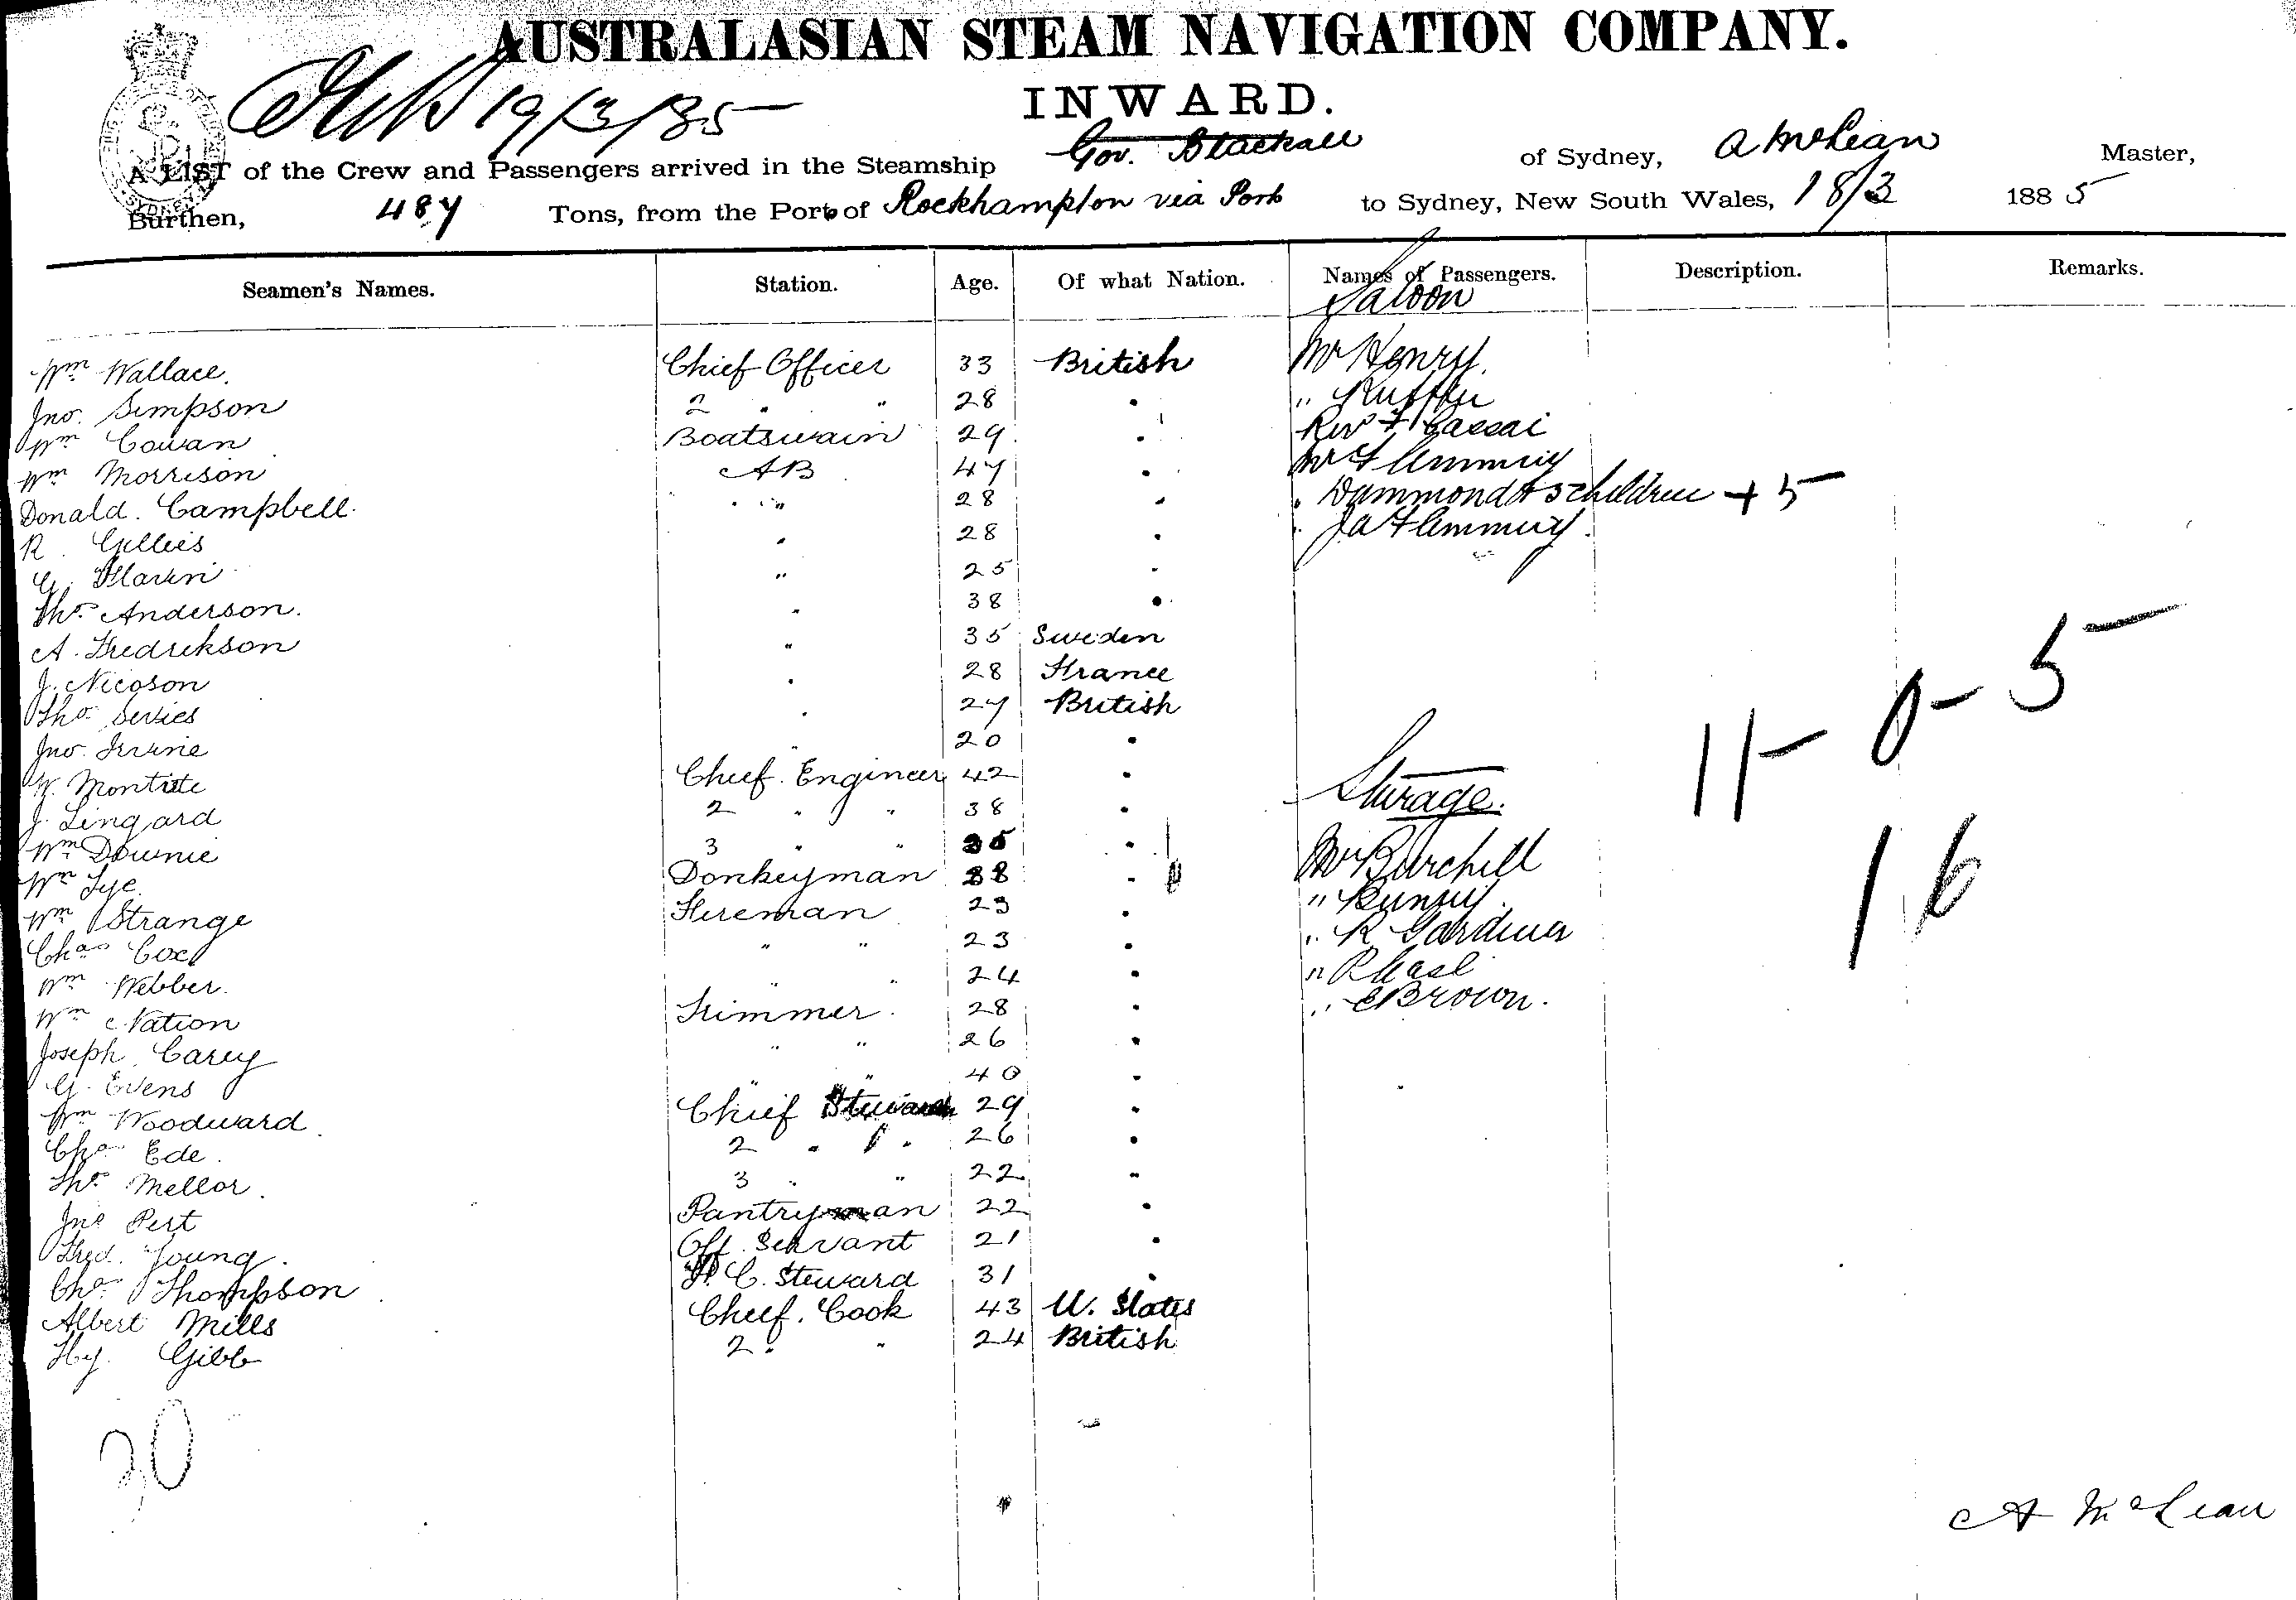 AUSTRALASIAN STEAM NAVIGATION COMPANY.
19/3/85
INWARD.
A LIST of the Crew and Passengers arrived in the Steamship Gov. Blackall of Sydney, A McLean Master,
Burthen, 487 Tons, from the Port of Rockhampton via Ports to Sydney, New South Wales, 18/3 1885
Seamen's Names. Station. Age. Of what Nation. Names of Passengers. Description. Remarks.
Saloon
Wm Wallace. Chief Officer 33 British Mr Henry.
Jno. Simpson 2 " " 28 "
Wm Cowan Boatswain 29 " Rev F Cassai
Wm Morrison AB 47 " Mr Flemming
Donald. Campbell. " " 28 " " Dummond & 5 children + 5
R. Gillies " 28 " " Ja Flemming.
G. " 25 "
Thos Anderson. " 38 "
A. Fredrikson " 35 Sweden
J. Nicoson " 28 France
Thos Servies " 27 British
Jno. Irvine " 20 "
W. Montete Chief. Engineer 42 "
11 - 0 - 5
J. Lingard 2 " " 38 " Sturage.
Wm Downie 3 " " 35 " Mr Burchill
16
Wm Tye. Donkeyman 28 "
Wm Strange Fireman 23 " " R Gardiner
Chas Cox " " 23 "
Wm Webber. " " 24 " " E Brown.
Wm Nation Trimmer. 28 "
Joseph Carey " " 26 "
G. Evens " " 40 "
Wm Woodward Chief Steward 29 "
Chas Ede. 2 " " 26 "
Thos Mellor. 3 " " 22 "
Jno Pert Pantryman 22 "
Fred. Young. Off. Servant 21 "
Chas Thompson F. C. Steward 31 "
Albert Mills Chief. Cook 43 U. States
Hy. Gibb 2 " " 24 British
30
A McLean